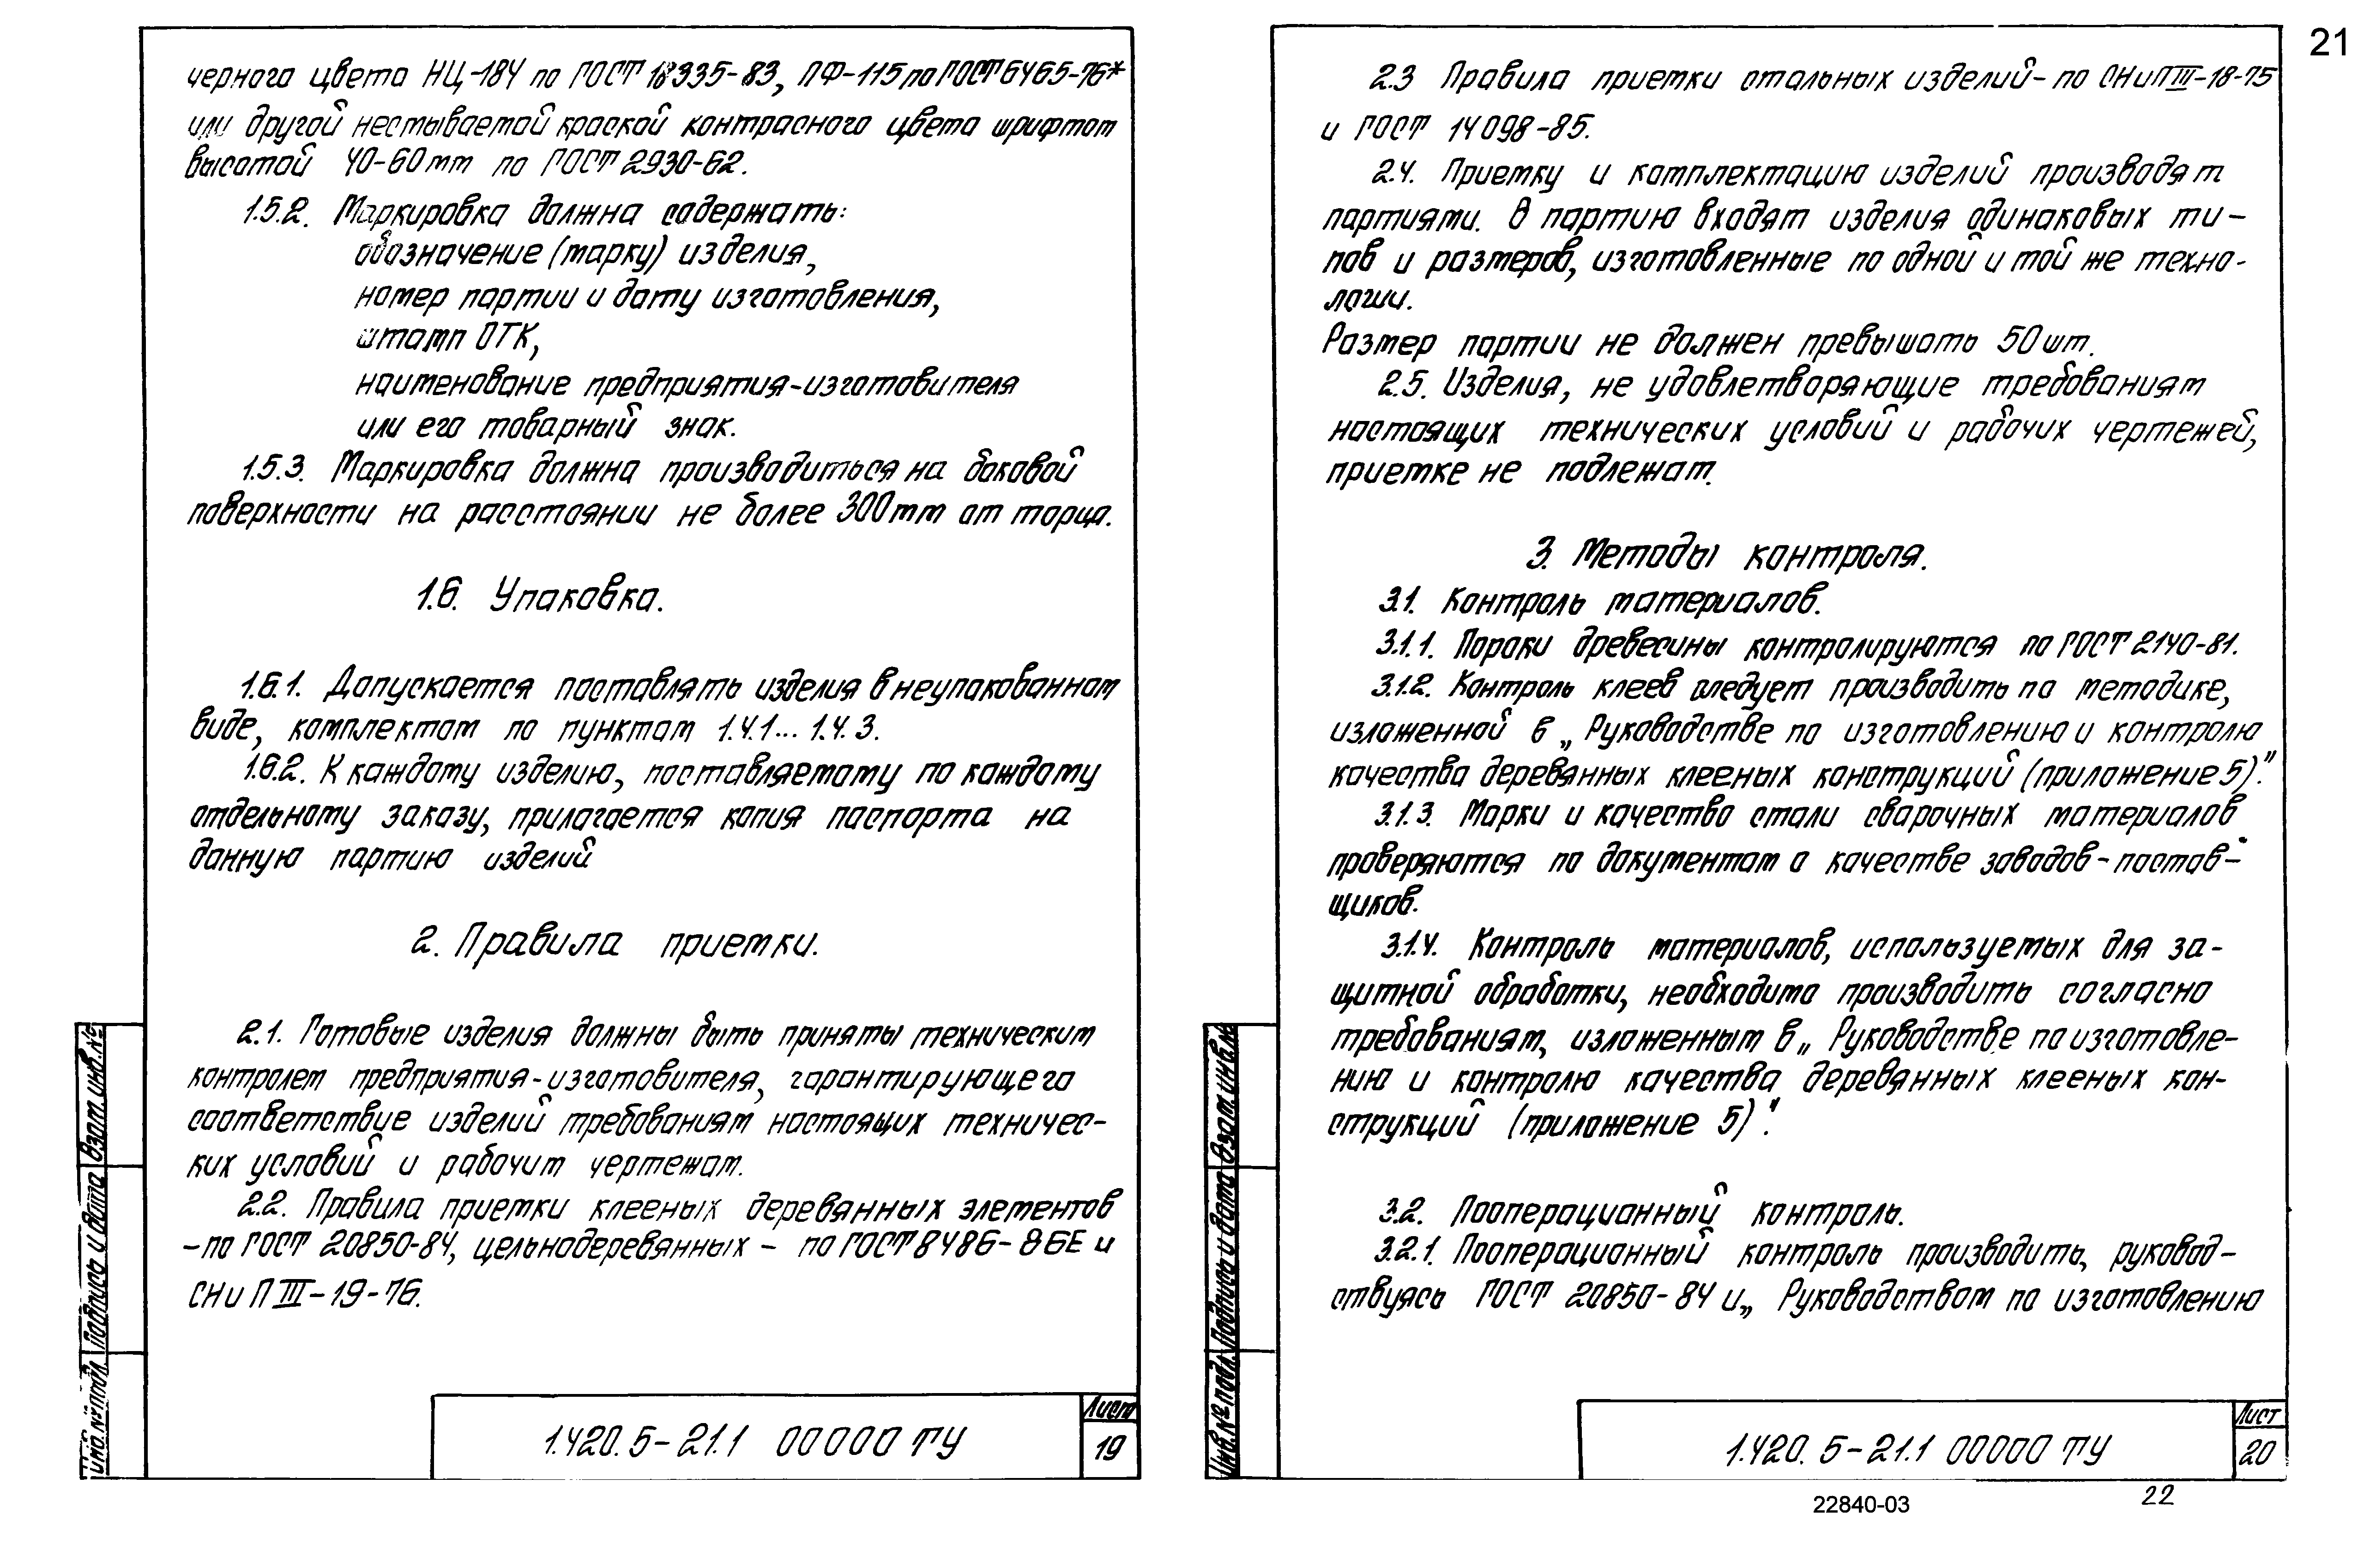 21
черного цвета НЦ-184 по ГОСТ 18335-83, ПФ-115 по ГОСТ 6465-76*
или другой несмываемой краской контрасного цвета шрифтом
высотой 40-60мм по ГОСТ 2930-62.
1.5.2. Маркировка должна содержать:
обозначение (марку) изделия,
номер партии и дату изготовления,
штамп ОТК,
наименование предприятия-изготовителя
или его товарный знак.
1.5.3. Маркировка должна производиться на боковой
поверхности на расстоянии не более 300мм от торца.
1.6. Упаковка.
1.6.1. Допускается поставлять изделия в неупакованном
виде, комплектом по пунктам 1.4.1... 1.4.3.
1.6.2. К каждому изделию, поставляемому по каждому
отдельному заказу, прилагается копия паспорта на
данную партию изделий
2. Правила приемки.
2.1. Готовые изделия должны быть приняты техническим
контролем предприятия-изготовителя, гарантирующего
соответствие изделий требованиям настоящих техничес-
ких условий и рабочим чертежам.
2.2. Правила приемки клееных деревянных элементов
-по ГОСТ 20850-84, цельнодеревянных - по ГОСТ 8486-86Е и
СНиП III-19-76.
Взам. инв.№
Подпись и дата
Инв.№ подл.
1.420.5-21.1 00000 ТУ
Лист
19
2.3 Правила приемки стальных изделий- по СНиП III-18-75
и ГОСТ 14098-85.
2.4. Приемку и комплектацию изделий производят
партиями. В партию входят изделия одинаковых ти-
пов и размеров, изготовленные по одной и той же техно-
логии.
Размер партии не должен превышать 50 шт.
2.5. Изделия, не удовлетворяющие требованиям
настоящих технических условий и рабочих чертежей,
приемке не подлежат.
3. Методы контроля.
3.1. Контроль материалов.
3.1.1. Пороки древесины контролируются по ГОСТ 2140-81.
3.1.2. Контроль клеев следует производить по методике,
изложенной в „Руководстве по изготовлению и контролю
качества деревянных клееных конструкций (приложение 5)".
3.1.3. Марки и качество стали сварочных материалов
проверяются по документам о качестве заводов-постав-
щиков.
3.1.4. Контроль материалов, используемых для за-
щитной обработки, необходимо производить согласно
требованиям, изложенным в „Руководстве по изготовле-
нию и контролю качества деревянных клееных кон-
струкций (приложение 5)".
3.2. Пооперационный контроль.
3.2.1. Пооперационный контроль производить, руковод-
ствуясь ГОСТ 20850-84 и „Руководством по изготовлению
Взам. инв.№
Подпись и дата
Инв.№ подл.
1.420.5-21.1 00000 ТУ
Лист
20
22840-03
22